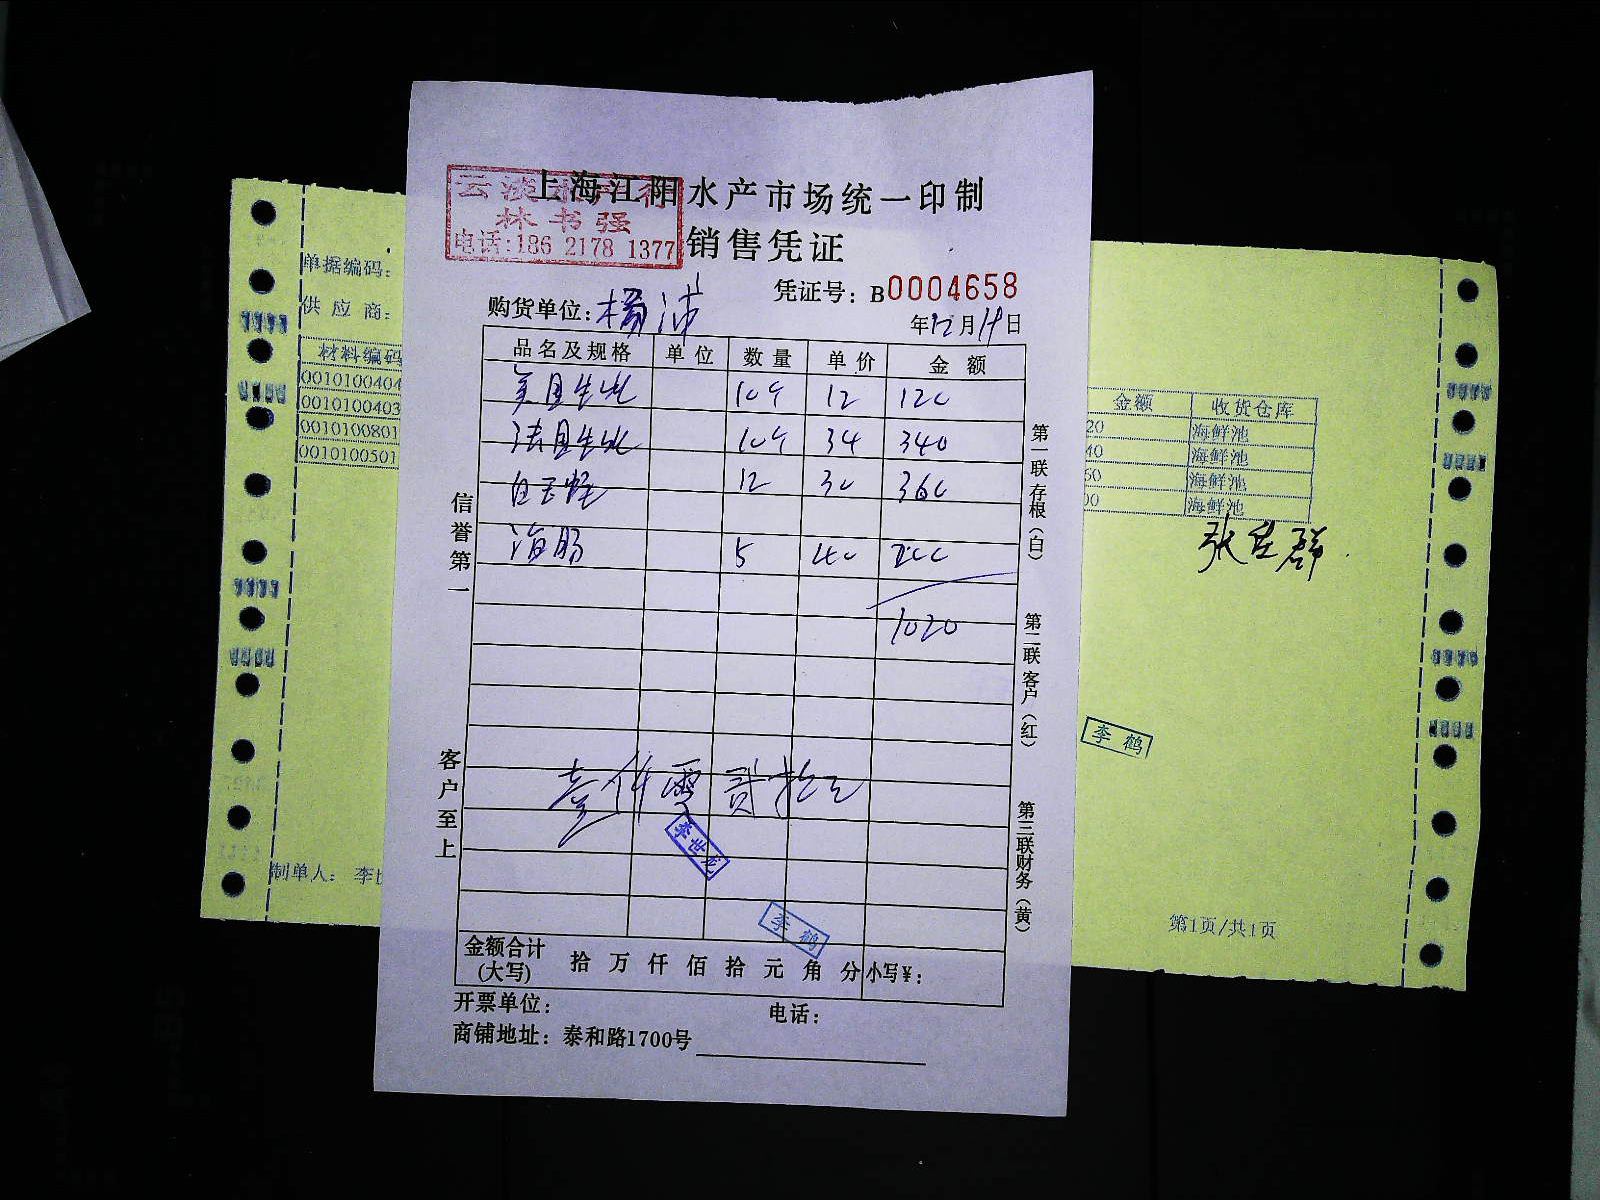 上海江阳水产市场统一印制
林书强
电话:186 2178 1377
销售凭证
凭证号: B0004658
购货单位: 杨沛
年12月19日
品名及规格 单位 数量 单价 金额
美国生蚝 10个 12 120
法国生蚝 10个 34 340
白玉蛏 12 30 360
海肠 5 40 200
1020
壹仟零贰拾元
李世龙
李鹤
金额合计(大写) 拾 万 仟 佰 拾 元 角 分 小写¥:
开票单位: 电话:
商铺地址: 泰和路1700号
信誉第一
客户至上
第一联存根(白)
第二联客户(红)
第三联财务(黄)
单据编码:
供应商:
材料编码
0010100404
0010100403
0010100801
0010100501
制单人: 李
金额 收货仓库
20 海鲜池
40 海鲜池
60 海鲜池
00 海鲜池
李鹤
第1页/共1页